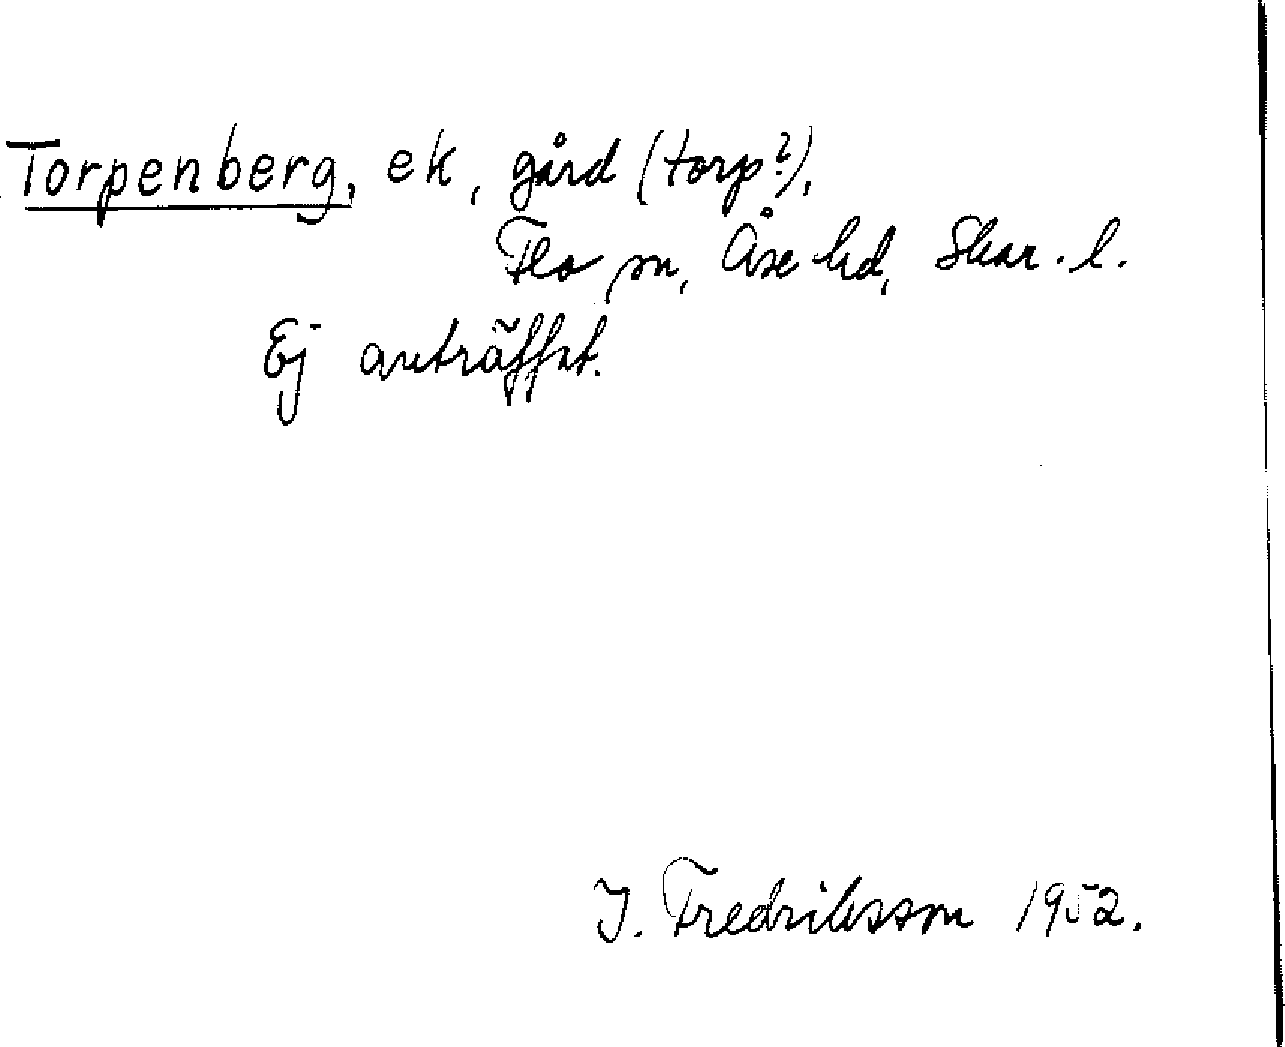 Torpenberg, ek, gård (torp?),
Flo sn, Åse hd, Skar. l.
Ej anträffat.
J. Fredriksson 1952.